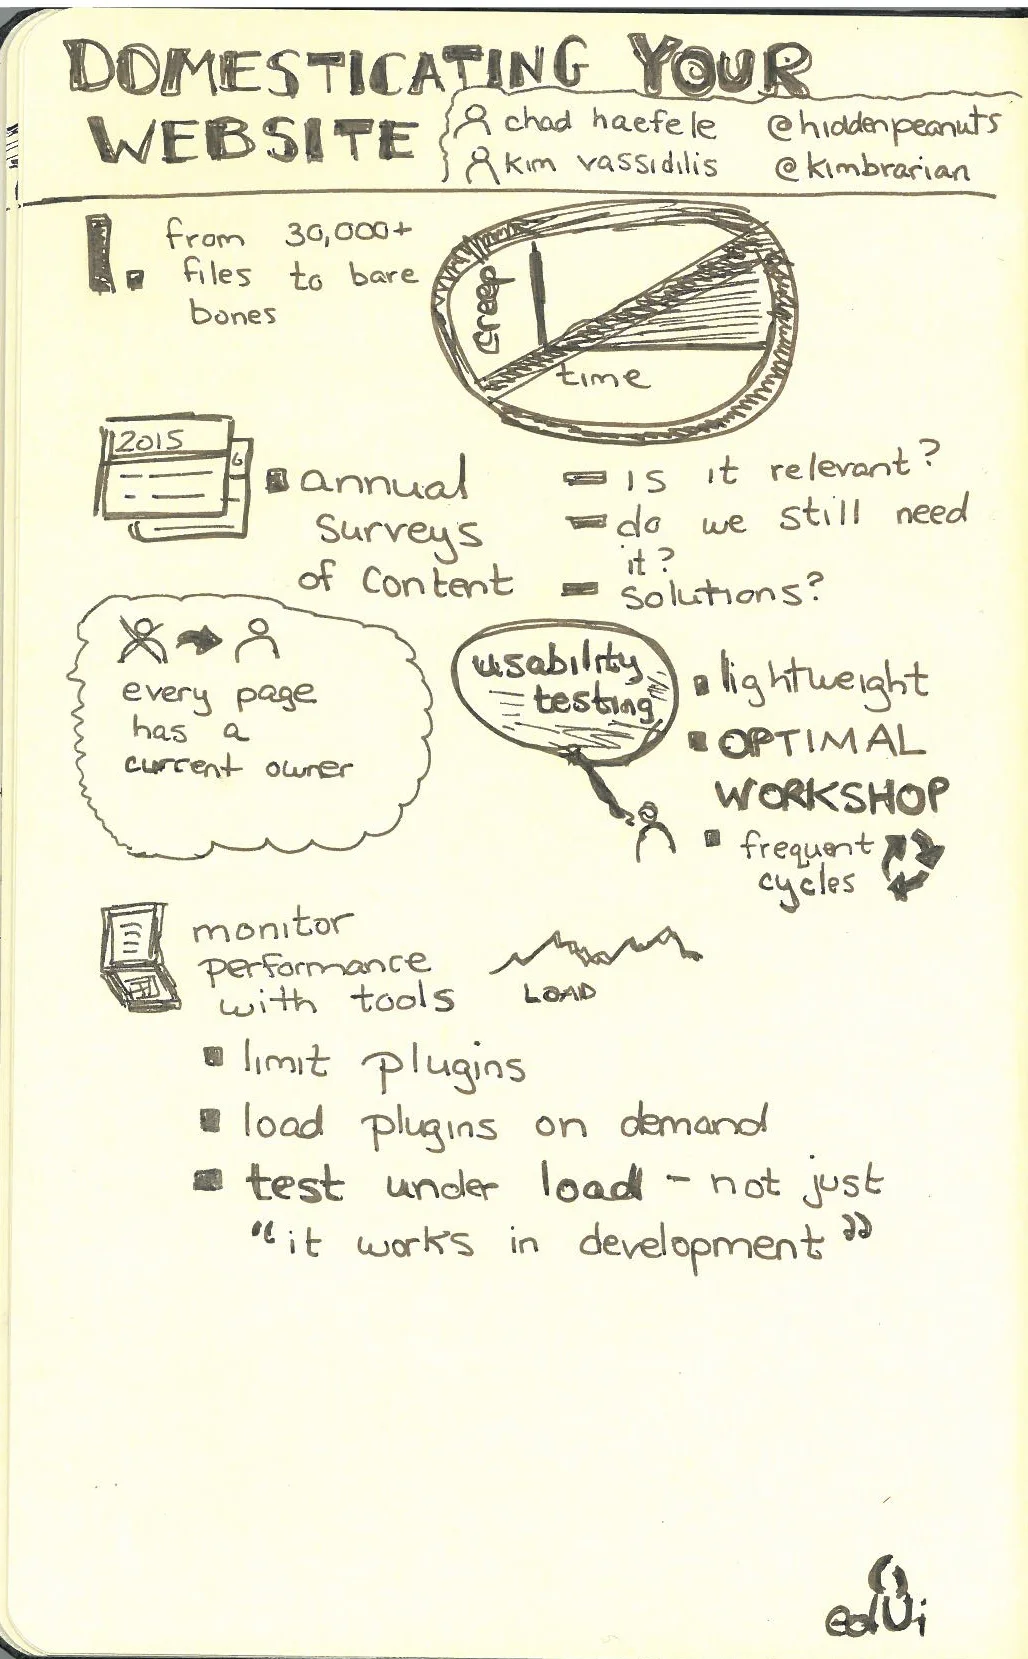 DOMESTICATING YOUR
WEBSITE
chad haefele @hiddenpeanuts
kim vassidilis @kimbrarian
1. from 30,000+
files to bare
bones
creep
time
2015
6
annual
surveys
of content
is it relevant?
do we still need
it?
solutions?
every page
has a
current owner
usability
testing
lightweight
OPTIMAL
WORKSHOP
frequent
cycles
monitor
performance
with tools
LOAD
limit plugins
load plugins on demand
test under load - not just
"it works in development"
edUi